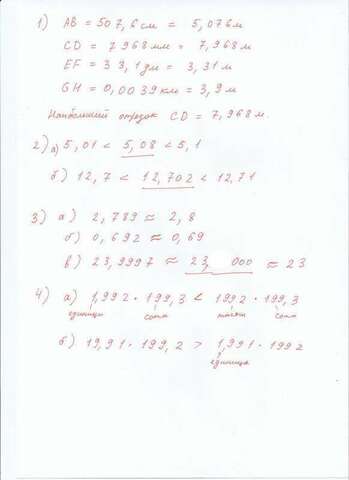 1) AB = 507,6 см = 5,076 м
CD = 7968 мм = 7,968 м
EF = 33,1 дм = 3,31 м
GH = 0,0039 км = 3,9 м
Наибольший отрезок CD = 7,968 м.
2) а) 5,01 < 5,08 < 5,1
б) 12,7 < 12,702 < 12,71
3) а) 2,789 ≈ 2,8
б) 0,692 ≈ 0,69
в) 23,9997 ≈ 23, 000 ≈ 23
4) а) 1,992 · 199,3 < 1992 · 199,3
единицы сотн тысяч сотн
б) 19,91 · 199,2 > 1,991 · 1992
единица